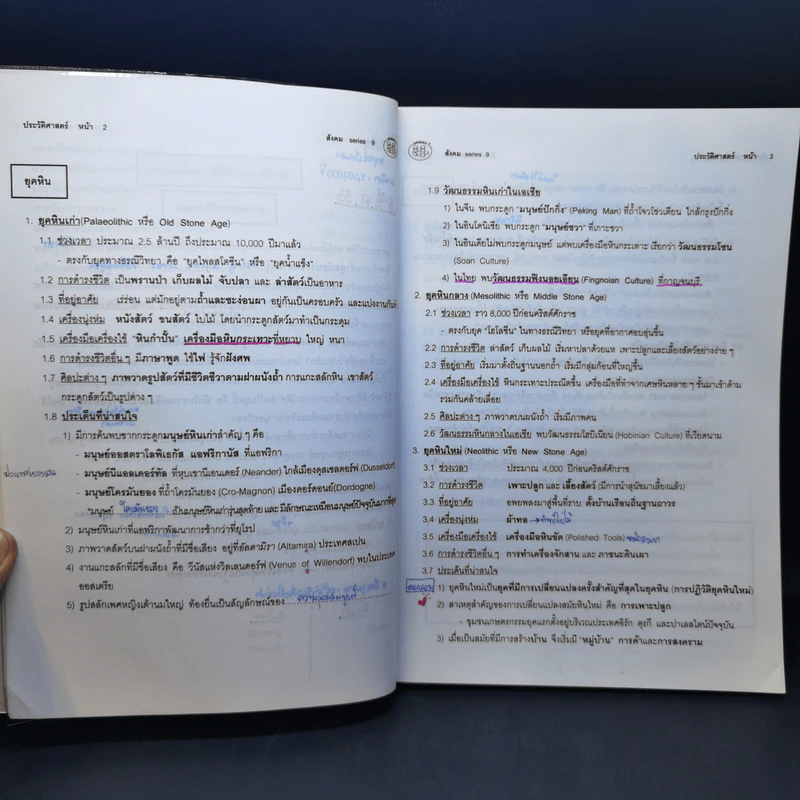 ประวัติศาสตร์ หน้า 2
สังคม series 9
ยุคหิน
1. ยุคหินเก่า(Palaeolithic หรือ Old Stone Age)
1.1 ช่วงเวลา ประมาณ 2.5 ล้านปี ถึงประมาณ 10,000 ปีมาแล้ว
- ตรงกับยุคทางธรณีวิทยา คือ "ยุคไพลสโตซีน" หรือ "ยุคน้ำแข็ง"
1.2 การดำรงชีวิต เป็นพรานป่า เก็บผลไม้ จับปลา และ ล่าสัตว์เป็นอาหาร
1.3 ที่อยู่อาศัย เร่ร่อน แต่มักอยู่ตามถ้ำและชะง่อนผา อยู่กันเป็นครอบครัว และแบ่งงานกันทำ
1.4 เครื่องนุ่งห่ม หนังสัตว์ ขนสัตว์ ใบไม้ โดยนำกระดูกสัตว์มาทำเป็นกระดุม
1.5 เครื่องมือเครื่องใช้ "หินกำปั้น" เครื่องมือหินกระเทาะที่หยาบ ใหญ่ หนา
1.6 การดำรงชีวิตอื่น ๆ มีภาษาพูด ใช้ไฟ รู้จักฝังศพ
1.7 ศิลปะต่าง ๆ ภาพวาดรูปสัตว์ที่มีชีวิตชีวาตามฝาผนังถ้ำ การแกะสลักหิน เขาสัตว์
กระดูกสัตว์เป็นรูปต่าง ๆ
1.8 ประเด็นที่น่าสนใจ
1) มีการค้นพบซากกระดูกมนุษย์หินเก่าสำคัญ ๆ คือ
- มนุษย์ออสตราโลพิเธกัส แอฟริกานัส ที่แอฟริกา
- มนุษย์นีแอลเดอร์ทัล ที่หุบเขานีเอนเดอร์ (Neander) ใกล้เมืองดุสเซลดอร์ฟ (Dusseldorf)
- มนุษย์โครมันยอง ที่ถ้ำโครมันยอง (Cro-Magnon) เมืองดอร์ดอนย์(Dordogne)
"มนุษย์ โครมันยอง เป็นมนุษย์หินเก่ารุ่นสุดท้าย และ มีลักษณะเหมือนมนุษย์ปัจจุบันมากที่สุด
2) มนุษย์หินเก่าที่แอฟริกาพัฒนาการช้ากว่าที่ยุโรป
3) ภาพวาดสัตว์บนฝาผนังถ้ำที่มีชื่อเสียง อยู่ที่อัลตามิรา (Altamira) ประเทศสเปน
4) งานแกะสลักที่มีชื่อเสียง คือ วีนัสแห่งวิลเลนดอร์ฟ (Venus of Willendorf) พบในประเทศ
ออสเตรีย
5) รูปสลักเพศหญิงเต้านมใหญ่ ท้องยื่นเป็นสัญลักษณ์ของ
สังคม series 9
ประวัติศาสตร์ หน้า 3
1.9 วัฒนธรรมหินเก่าในเอเชีย
1) ในจีน พบกระดูก "มนุษย์ปักกิ่ง" (Peking Man) ที่ถ้ำโจวโข่วเตียน ใกล้กรุงปักกิ่ง
2) ในอินโดนิเซีย พบกระดูก "มนุษย์ชวา" ที่เกาะชวา
3) ในอินเดียไม่พบกระดูกมนุษย์ แต่พบเครื่องมือหินกระเทาะ เรียกว่า วัฒนธรรมโซน
(Soan Culture)
4) ในไทย พบวัฒนธรรมฟิงนอยเอียน (Fingnoian Culture) ที่กาญจนบุรี
2. ยุคหินกลาง (Mesolithic หรือ Middle Stone Age)
2.1 ช่วงเวลา ราว 8,000 ปีก่อนคริสต์ศักราช
- ตรงกับยุค "โฮโลซีน" ในทางธรณีวิทยา หรือยุคที่อากาศอบอุ่นขึ้น
2.2 การดำรงชีวิต ล่าสัตว์ เก็บผลไม้ เริ่มหาปลาด้วยแห เพาะปลูกและเลี้ยงสัตว์อย่างง่าย ๆ
2.3 ที่อยู่อาศัย เริ่มมาตั้งถิ่นฐานนอกถ้ำ เริ่มมีกลุ่มก้อนที่ใหญ่ขึ้น
2.4 เครื่องมือเครื่องใช้ หินกระเทาะประณีตขึ้น เครื่องมือที่ทำจากเศษหินหลาย ๆ ชิ้นมาเข้าด้าม
รวมกันคล้ายเลื่อย
2.5 ศิลปะต่าง ๆ ภาพวาดบนผนังถ้ำ เริ่มมีภาพคน
2.6 วัฒนธรรมหินกลางในเอเชีย พบวัฒนธรรมโฮบิเนียน (Hobinian Culture) ที่เวียดนาม
3. ยุคหินใหม่ (Neolithic หรือ New Stone Age)
3.1 ช่วงเวลา ประมาณ 4,000 ปีก่อนคริสต์ศักราช
3.2 การดำรงชีวิต เพาะปลูก และ เลี้ยงสัตว์ (มีการนำสุนัขมาเลี้ยงแล้ว)
3.3 ที่อยู่อาศัย อพยพลงมาสู่พื้นที่ราบ ตั้งบ้านเรือนถิ่นฐานถาวร
3.4 เครื่องนุ่งห่ม ผ้าทอ
3.5 เครื่องมือเครื่องใช้ เครื่องมือหินขัด (Polished Tools)
3.6 การดำรงชีวิตอื่น ๆ การทำเครื่องจักสาน และ ภาชนะดินเผา
3.7 ประเด็นที่น่าสนใจ
1) ยุคหินใหม่เป็นยุคที่มีการเปลี่ยนแปลงครั้งสำคัญที่สุดในยุคหิน (การปฏิวัติยุคหินใหม่)
2) สาเหตุสำคัญของการเปลี่ยนแปลงสมัยหินใหม่ คือ การเพาะปลูก
- ชุมชนเกษตรกรรมยุคแรกตั้งอยู่บริเวณประเทศอิรัก ตุรกี และปาเลสไตน์ปัจจุบัน
3) เมื่อเป็นสมัยที่มีการสร้างบ้าน จึงเริ่มมี "หมู่บ้าน" การค้าและการสงคราม